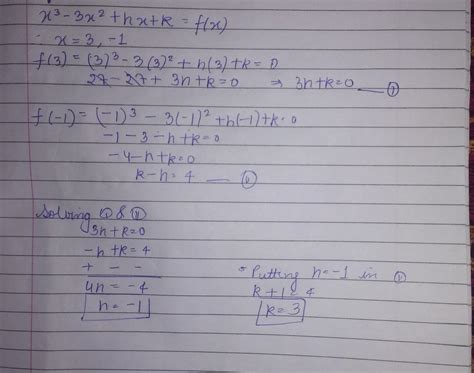 x³ - 3x² + hx + k = f(x)
∴ x = 3, -1
f(3) = (3)³ - 3(3)² + h(3) + k = 0
27 - 27 + 3h + k = 0 ⇒ 3h + k = 0 — ①
f(-1) = (-1)³ - 3(-1)² + h(-1) + k = 0
-1 - 3 - h + k = 0
-4 - h + k = 0
k - h = 4 — ⑪
Solving ① & ⑪
3h + k = 0
-h + k = 4
+ - -
4h = -4
h = -1
Putting h = -1 in ⑪
k + 1 = 4
k = 3